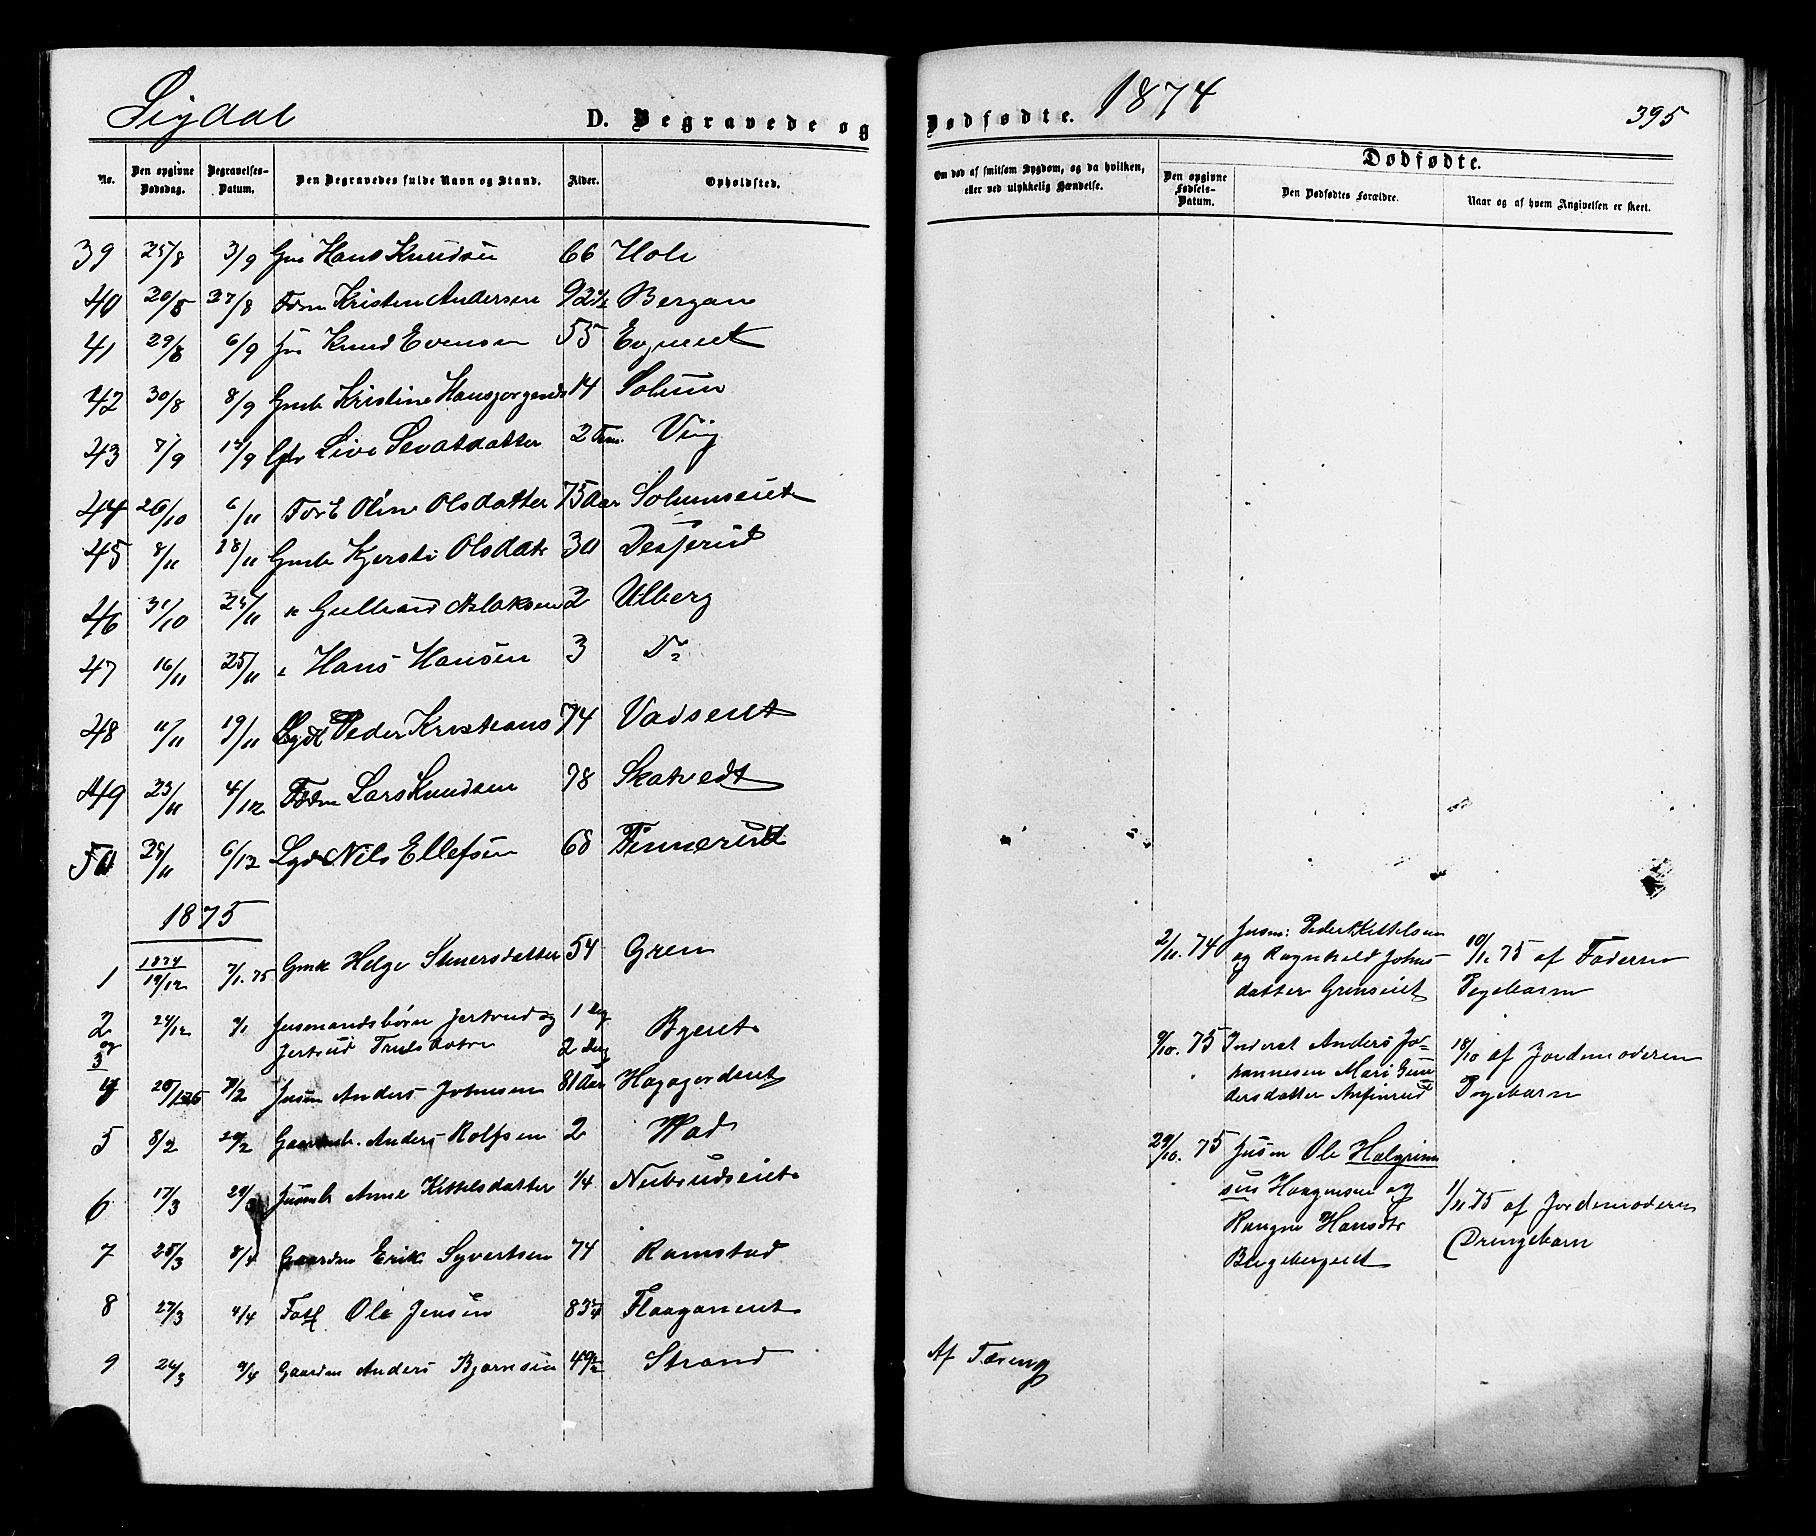 Sigdal
D. Begravede og
No.
Den opgivne Dødsdag.
Begravelses-Datum.
Den Begravedes fulde Navn og Stand.
Alder.
Opholdsted.
39 25/8 3/9 Hans Knudsen 66 Hole
40 20/8 27/8 Kristen Andersen 92 1/2 Bergan
41 29/8 6/9 Knud Evensen 55
42 30/8 8/9 Gmb Kristine Hansjorgensd 14 Solum
43 7/9 Live Sevatsdatter 2 Tim. Viig
44 26/10 6/11 Oline Olsdatter 75 Aar Solumseiet
45 8/11 18/11 Gmb Kjersti Olsdatr 30
46 31/10 25/11 " Gulbrand Aslaksen 2 Ulberg
47 16/11 25/11 " Hans Hansen 3 Do
48 11/11 19/11 Peder Kristians 74
49 23/11 4/12 Fdm Lars Knudsen 78 Skatvedt
50 6/12 Nils Ellefsen 68 Finnerud
1875
1 1874 19/12 7/1.75 Gmk Helge Stenersdatter 54 Gren
2 24/12 9/1 Jusmandsbørn Jertrud og 1 Dg
og Jertrud Trulsdotre 2 Dag
3
4 7/2 Jusm Anders Johnsen 81 Aar Hagagordeiet
5 8/2 20/2 Gaardmb. Anders Rolfsen 2 Wad
6 17/3 Jusmb Anne Kittelsdatter 1/4 Nubsrudseiet
7 25/3 8/4 Gaardm Erik Syvertsen 74 Ramstad
8 27/3 4/4 Ole Jensen 83 3/4
9 24/3 9/4 Gaardm Anders Bjørnsen 49 1/2 Strand
Dødfødte. 1874
395
Om død af smitsom Sygdom, og da hvilken,
eller ved ulykkelig Hændelse.
Dødfødte.
Den opgivne Fødsels-Datum.
Den Dødfødtes Forældre.
Naar og af hvem Angivelsen er skeet.
2/11. 74 Jusm: Peder Kittelsen 10/1. 75 af Faderen
og Ragnhild Johns-
datter Grenseiet Pigebarn
9/10. 75 Inderst Anders Jo- 18/10 af Jordemoderen
hannesen Mari Gun
dersdatter Anfinrud Pigebarn
29/10. 75 Jusm Ole Halgrim
sen Haagensen og 1/11 75 af Jordemoderen
Rangne Hansdtr Drengebarn
Af Tæring